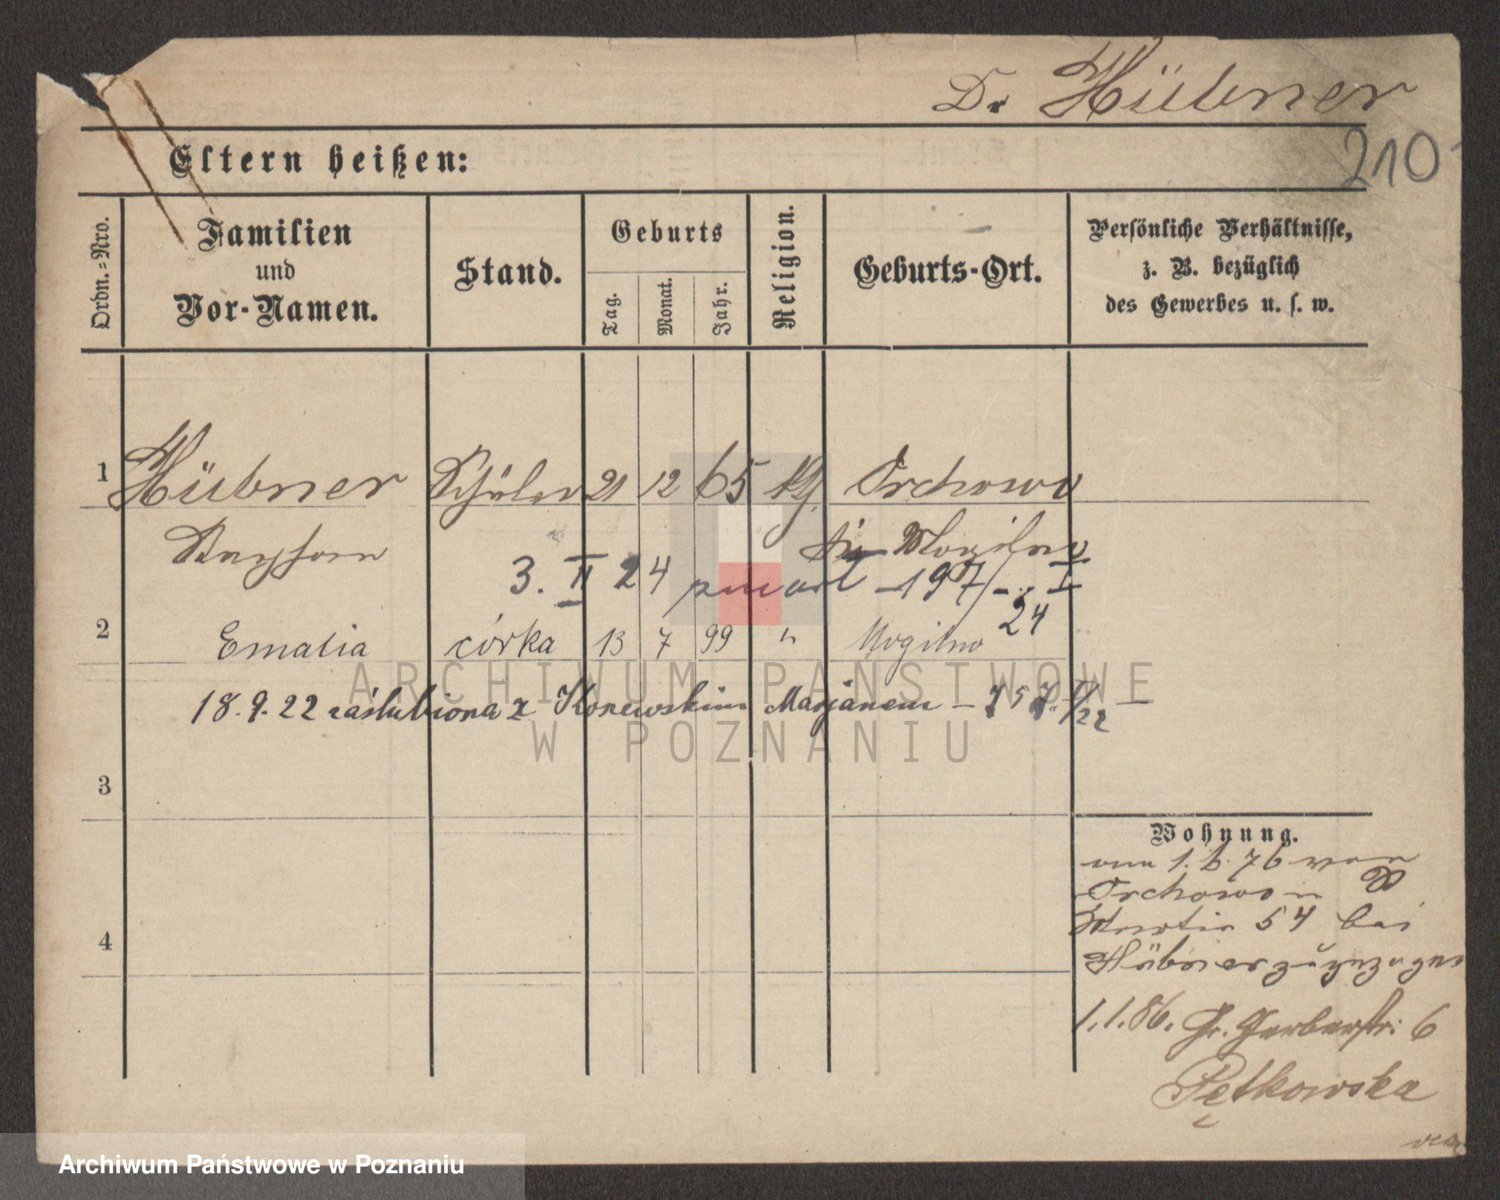 Dr Hübner
210
Eltern heißen:
Ordn.=Nro.
Familien
und
Vor-Namen.
Stand.
Geburts
Tag.
Monat.
Jahr.
Religion.
Geburts-Ort.
Persönliche Verhältnisse,
z. B. bezüglich
des Gewerbes u. s. w.
1 Hübner Schüler 21 12 65 Orchowo
Mogilno
3. II 24 zmarł - 197/I 24
2 Emalia córka 13 7 99 " Mogilno
18.9.22 zaślubiona z Konewskim Marjanem
3
4
Wohnung.
1.6.76 von
Orchowo
Martin 54 bei
Hübner zugezogen
1.1.86. Gr. Gerberstr: 6
Pętkowska
ARCHIWUM PAŃSTWOWE
W POZNANIU
Archiwum Państwowe w Poznaniu